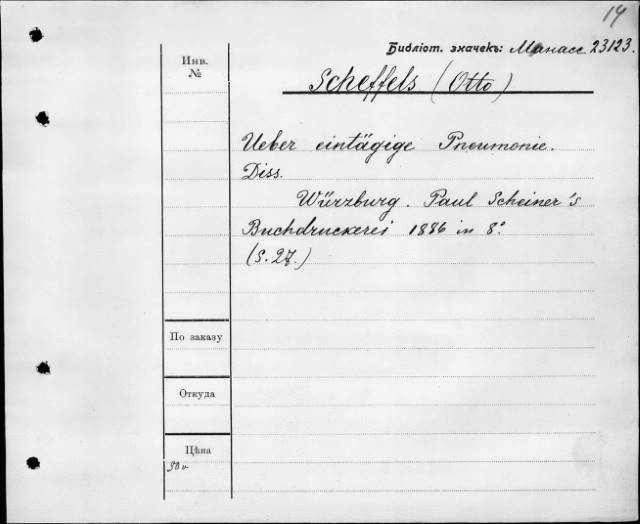 14
Библіот. значекъ: Манасс. 23123.
Инв.
№
Scheffels (Otto)
Ueber eintägige Pneumonie.
Diss.
Würzburg. Paul Scheiner's
Buchdruckerei 1886 in 8°.
(S. 27.)
По заказу
Откуда
Цѣна